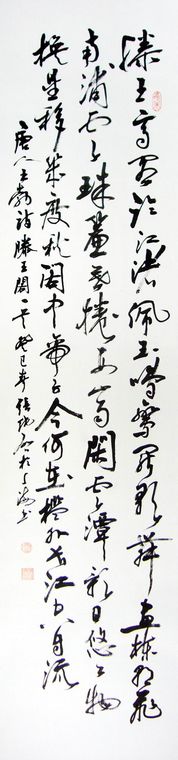 滕王高閣臨江渚佩玉鳴鸞罷歌舞畫棟朝飛
南浦雲珠簾暮捲西山雨閑雲潭影日悠々物
換星移幾度秋閣中帝子今何在檻外長江空自流
唐人王勃詩滕王閣一首癸巳年張於上海